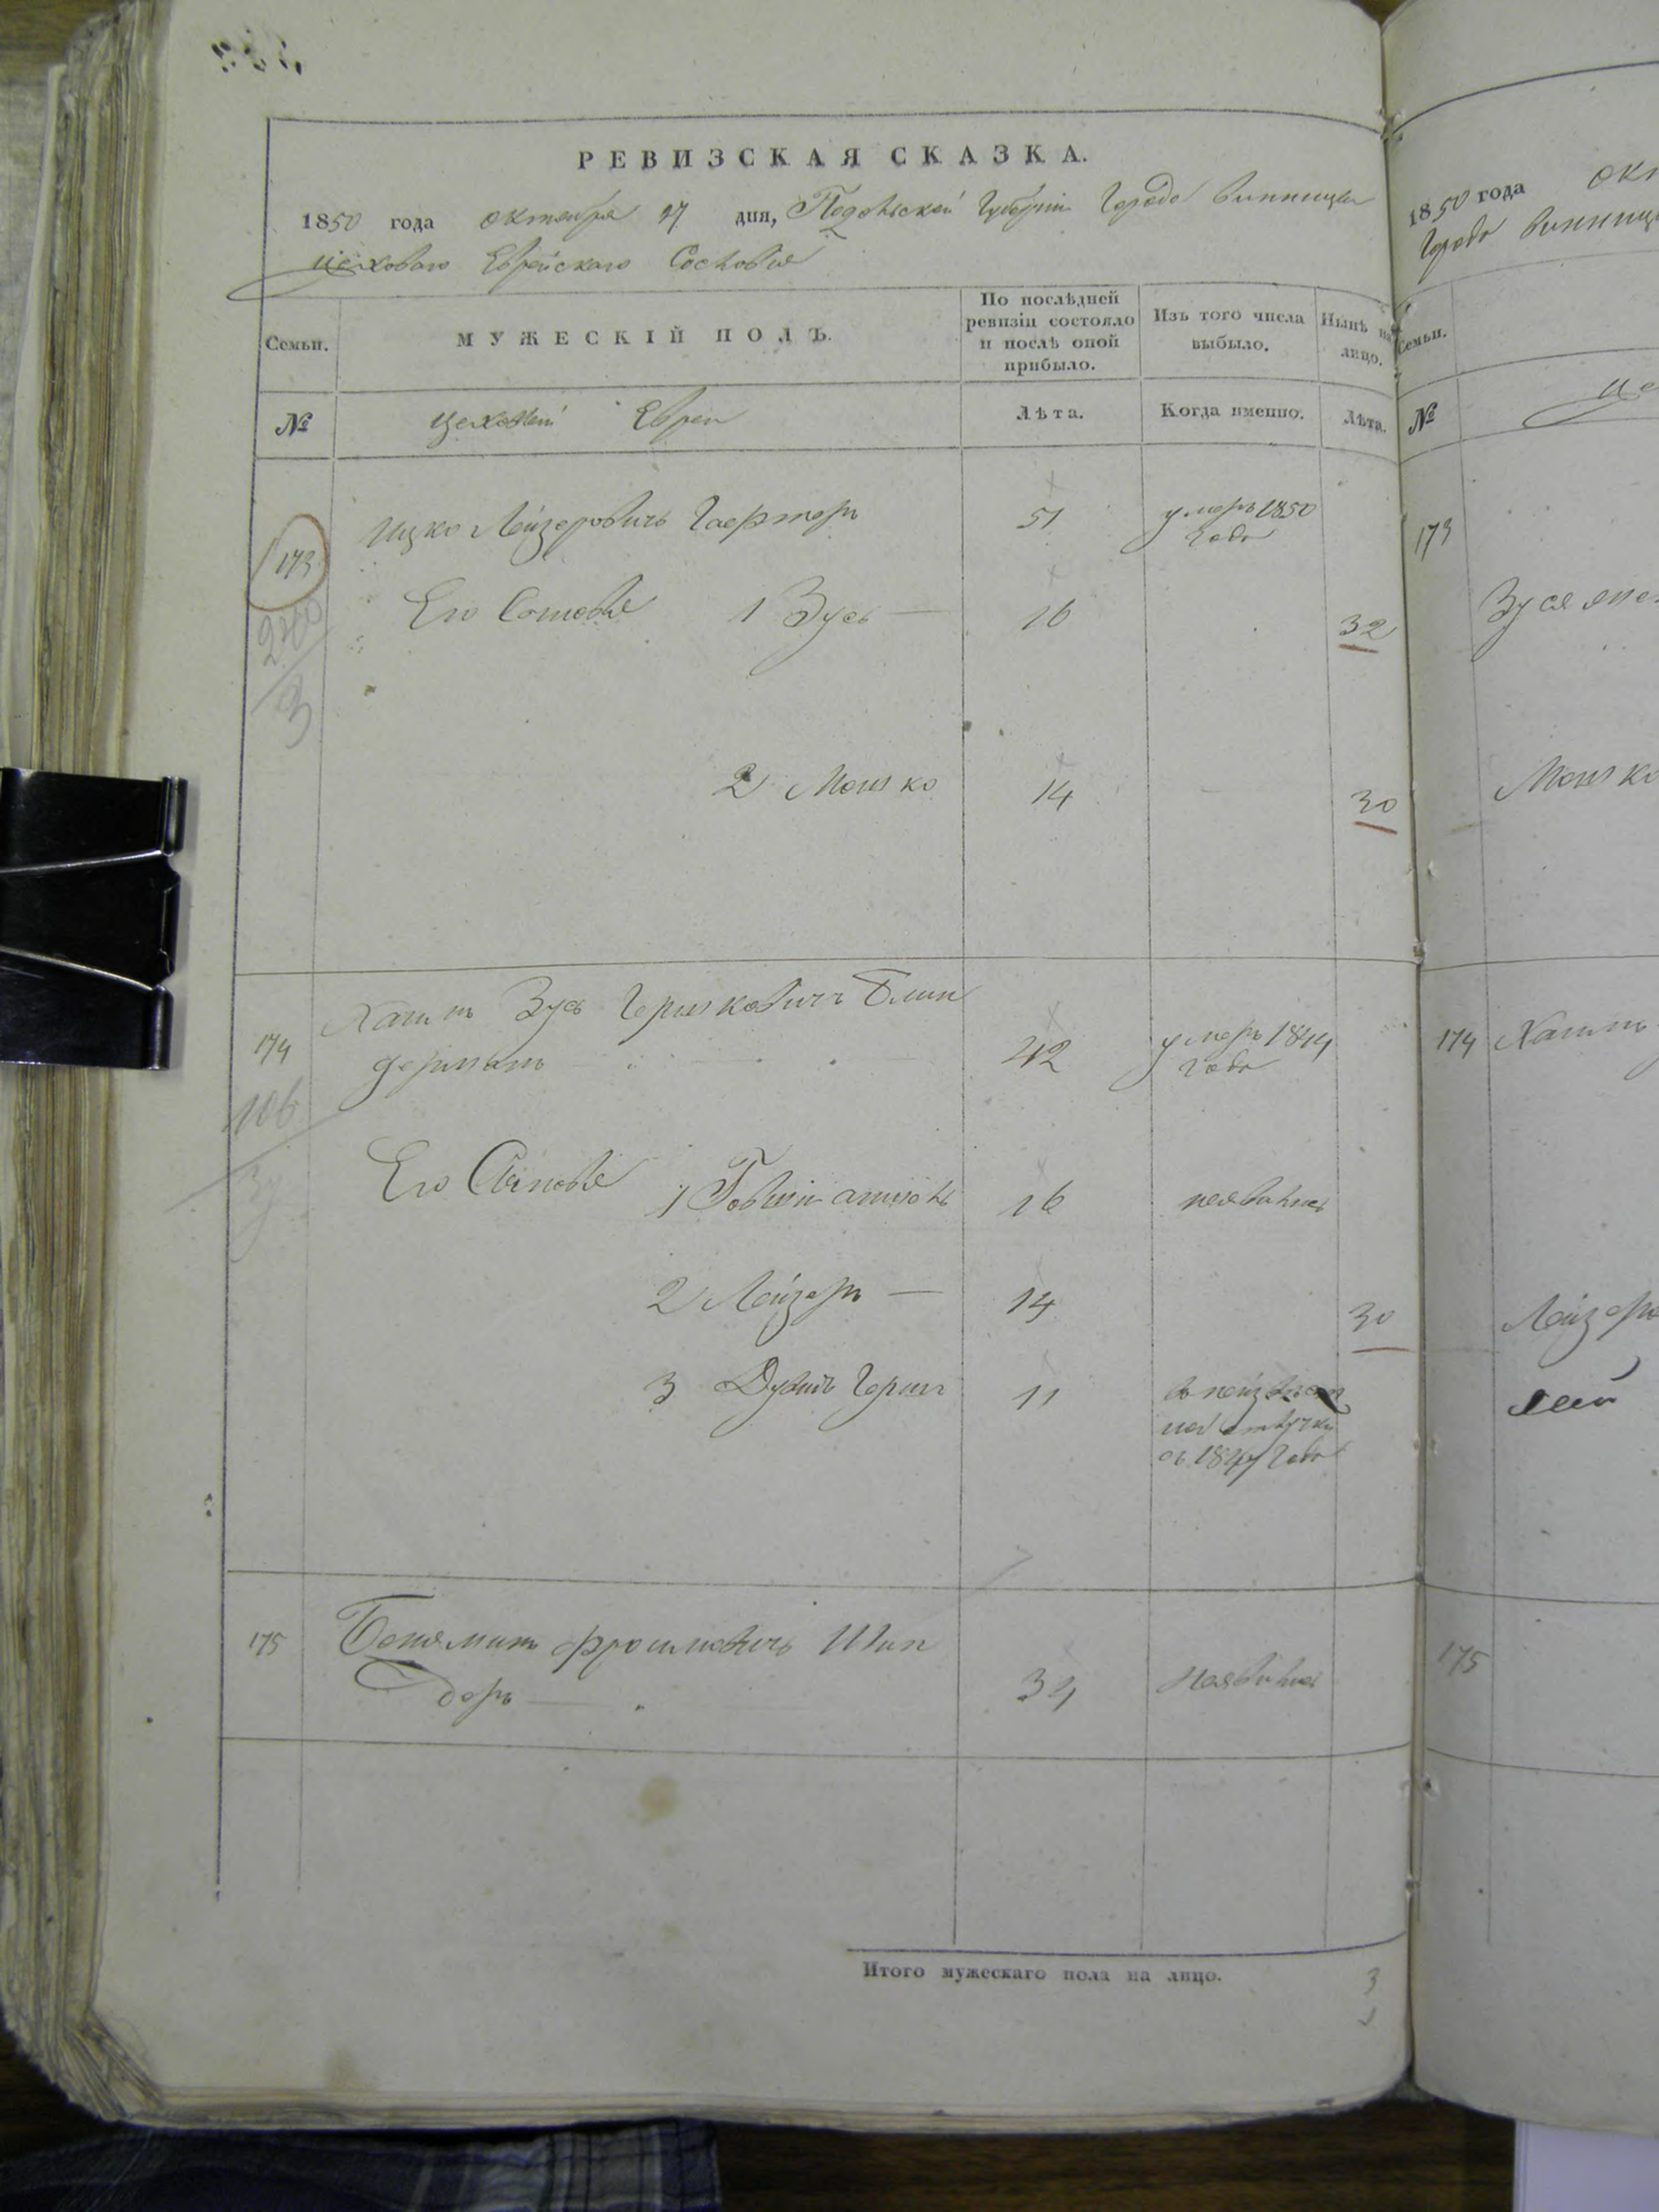 РЕВИЗСКАЯ СКАЗКА.
1850 года октября 17 дня, Подольской Губернии Города Винницы
цеховаго Еврейскаго Сословия
Семьи.
МУЖЕСКІЙ ПОЛЪ.
По послѣдней ревизіи состояло и послѣ оной прибыло.
Изъ того числа выбыло.
Нынѣ на лицо.
№
Евреи
Лѣта.
Когда именно.
Лѣта.
173
Ицко Лейзеровичъ
51
умеръ 1850 года
Его Сыновья 1 Зусь
16
32
2 Мошко
14
30
174
Хаимъ Зусь Гершковичъ Блин
дерманъ
42
умеръ 1844 года
106
Его Сыновья 1
16
неявился
2 Лейзеръ
14
30
3 Дувидъ Герш
11
в неизвѣстной отлучке
съ года
175
Бениаминъ Фроимовичъ Шин
деръ
34
Неявился
Итого мужескаго пола на лицо.
3
1850 года окт
Города Винниц
Семьи.
№
173
Зуся
Мошко
174 Хаим
Лейзера
175